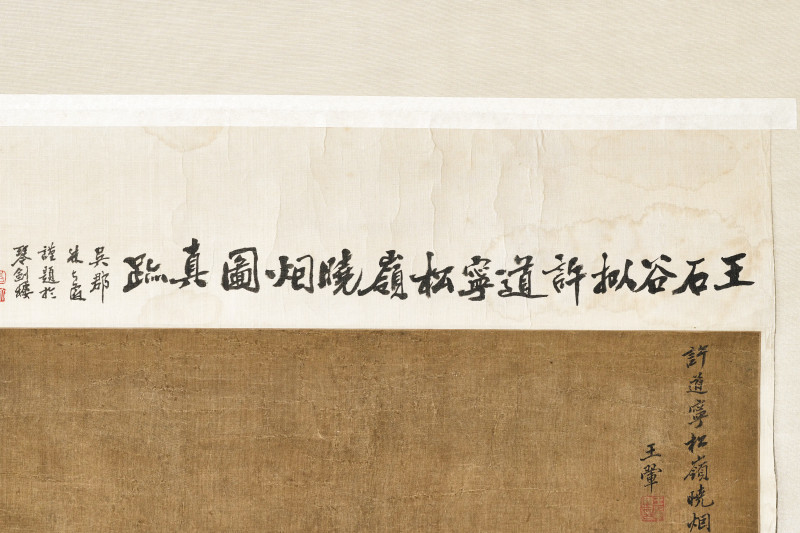 王石谷拟許道寧松嶺曉烟圖真跡
吳郡
謹題於
琴劍樓
許道寧松嶺曉烟
王翬